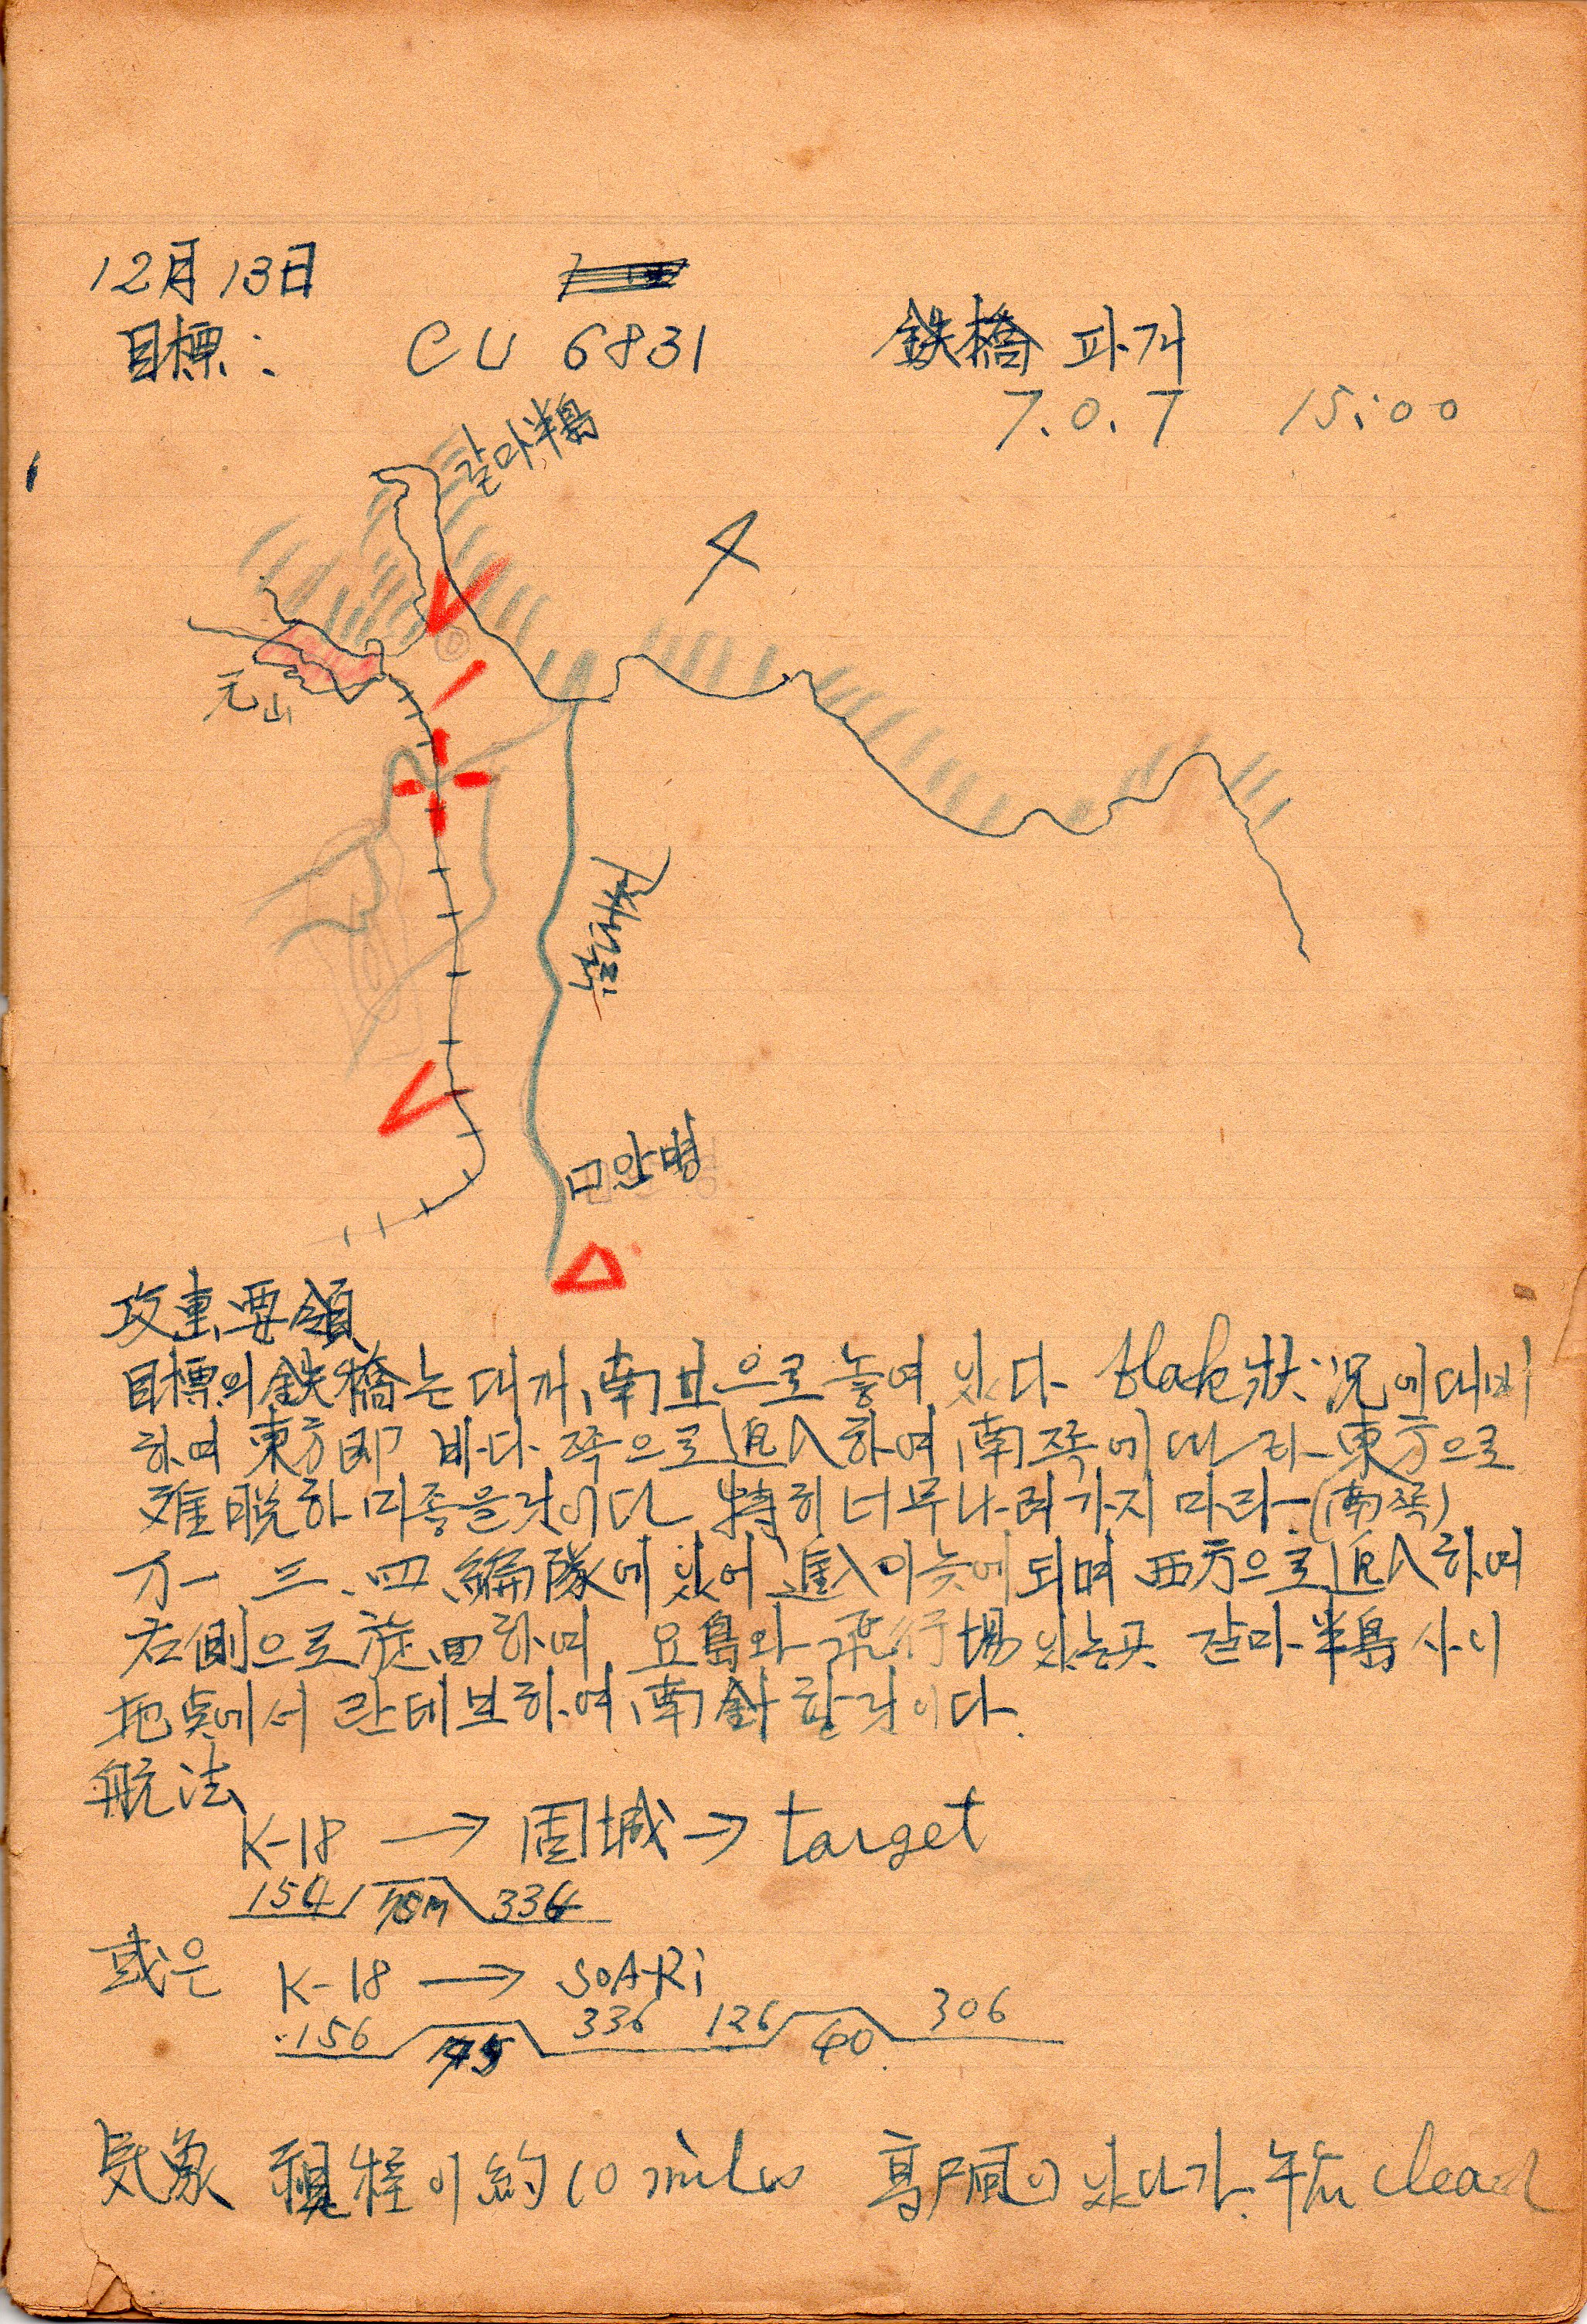 12月 13日
目標: CU 6831 鉄橋 파개
7.0.7 15:00
갈마半島
元山
안변
攻車要領
目標의 鉄橋는 대개 南北으로 놓여 있다 flak 狀況에 대비
하여 東方即 바다 쪽으로 進入하여 南쪽에 따라 東方으로
離脱하며 좋을것이다 特히 너무 나려가지 마라 (南쪽)
万一 三、四、編隊에 있어 進入이 늦게 되며 西方으로 進入하여
右側으로 旋回하며 요島와 飛行場 있는곳 갈마半島 사이
地点에서 란데브하여 南針할것이다.
航法
K-18 → 固城 → target
154 70m 334
或은 K-18 → SOA-Ri
156 45 336 126 40 306
気象 視程이 約 10 miles 高層이 있다가 午后 clear